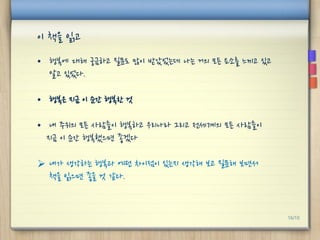 이 책을 읽고
• 행복에 대해 궁금하고 질문도 많이 받았었는데 나는 거의 모든 요소를 느끼고 있고
알고 있었다.
• 행복은 지금 이 순간 행복한 것
• 내 주위의 모든 사람들이 행복하고 우리나라 그리고 전세계의 모든 사람들이
지금 이 순간 행복했으면 좋겠다
➢ 내가 생각하는 행복과 어떤 차이점이 있는지 생각해 보고 질문해 보면서
책을 읽으면 좋을 것 같다.
16/16